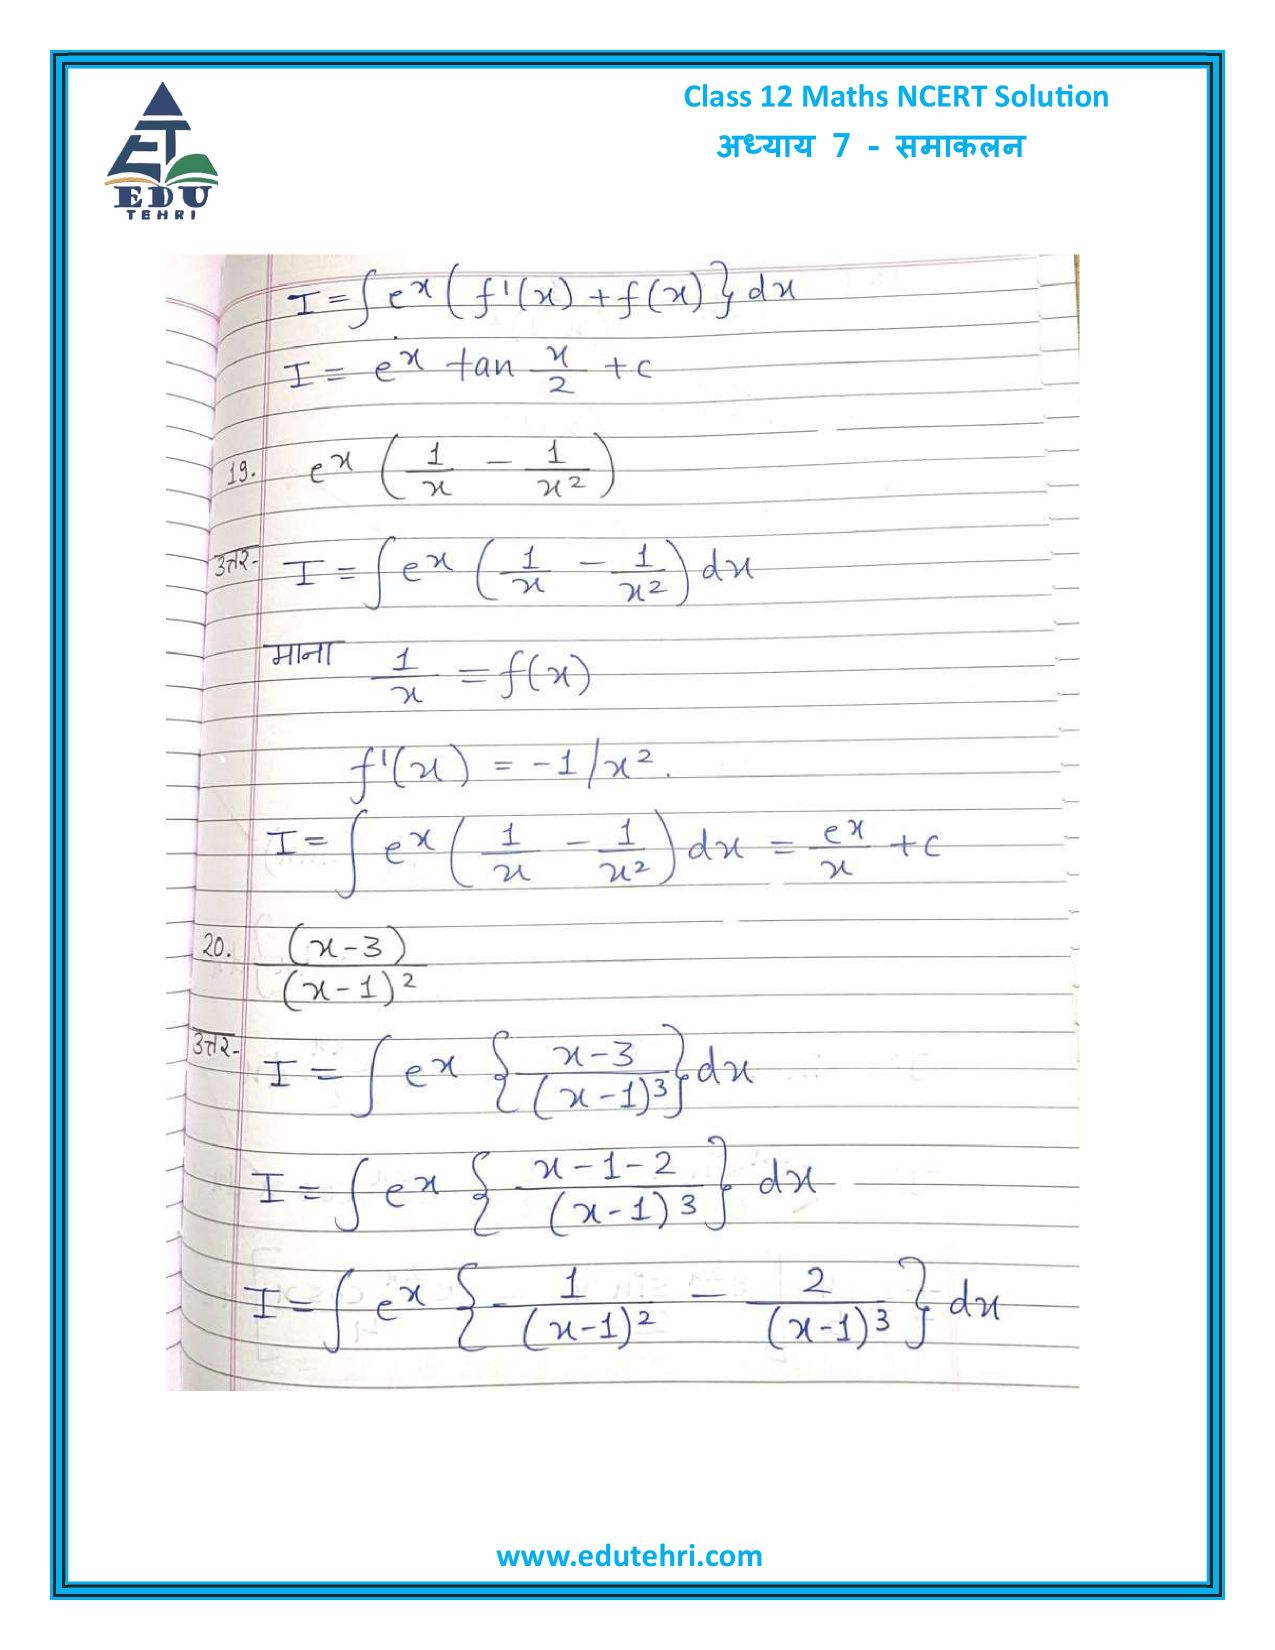 Class 12 Maths NCERT Solution
अध्याय 7 - समाकलन
EDU
TEHRI
I = ∫ e^x ( f'(x) + f(x) } dx
I = e^x tan x/2 + c
19. e^x ( 1/x - 1/x² )
उत्तर- I = ∫ e^x ( 1/x - 1/x² ) dx
माना 1/x = f(x)
f'(x) = -1/x².
I = ∫ e^x ( 1/x - 1/x² ) dx = e^x/x + c
20. (x-3)/(x-1)²
उत्तर- I = ∫ e^x { x-3/(x-1)³ } dx
I = ∫ e^x { x-1-2/(x-1)³ } dx
I = ∫ e^x { 1/(x-1)² - 2/(x-1)³ } dx
www.edutehri.com